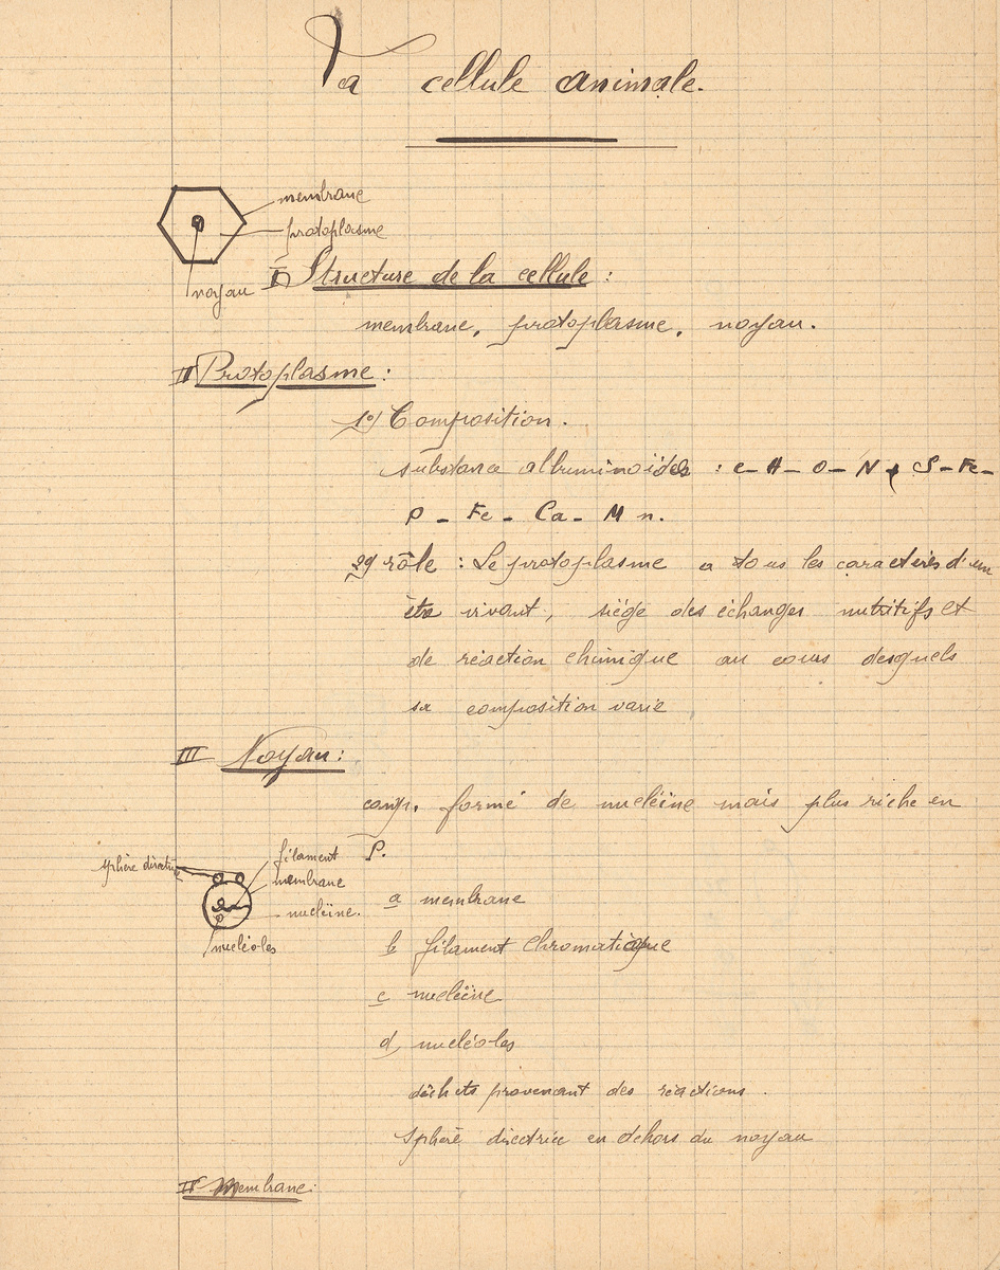 La cellule animale.
membrane
protoplasme
noyau
I Structure de la cellule :
membrane, protoplasme, noyau.
II Protoplasme :
1º) Composition.
substance albuminoïdes : C - H - O - N + S - Fe -
P - Fe - Ca - Mn.
2º) rôle : Le protoplasme a tous les caractères d'un
être vivant, siège des échanges nutritifs et
de réaction chimique au cours desquels
sa composition varie
III Noyau :
comp. formé de nucléine mais plus riche en
P.
sphère directrice
filament
membrane
nucléine.
nucléoles
a membrane
b filament chromatique
c nucléine
d nucléoles
déchets provenant des réactions.
sphère directrice en dehors du noyau
IV Membrane :